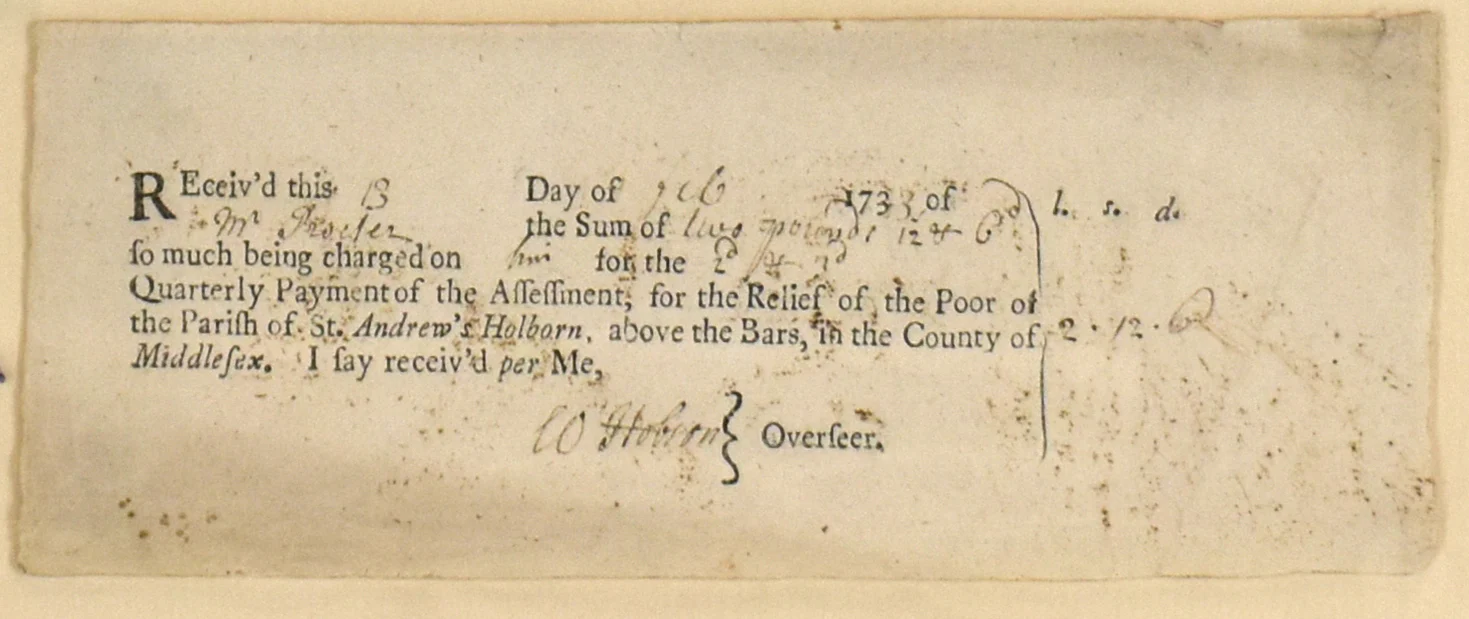 REceiv'd this 13 Day of feb 1733 of l. s. d.
Mr Procter the Sum of two pounds 12 & 6d
ſo much being charged on him for the 2d & 3d
Quarterly Payment of the Aſſeſſment, for the Relief of the Poor of
the Pariſh of St. Andrew's Holborn, above the Bars, in the County of 2 . 12 . 6
Middleſex. I ſay receiv'd per Me,
W Hobson } Overſeer.